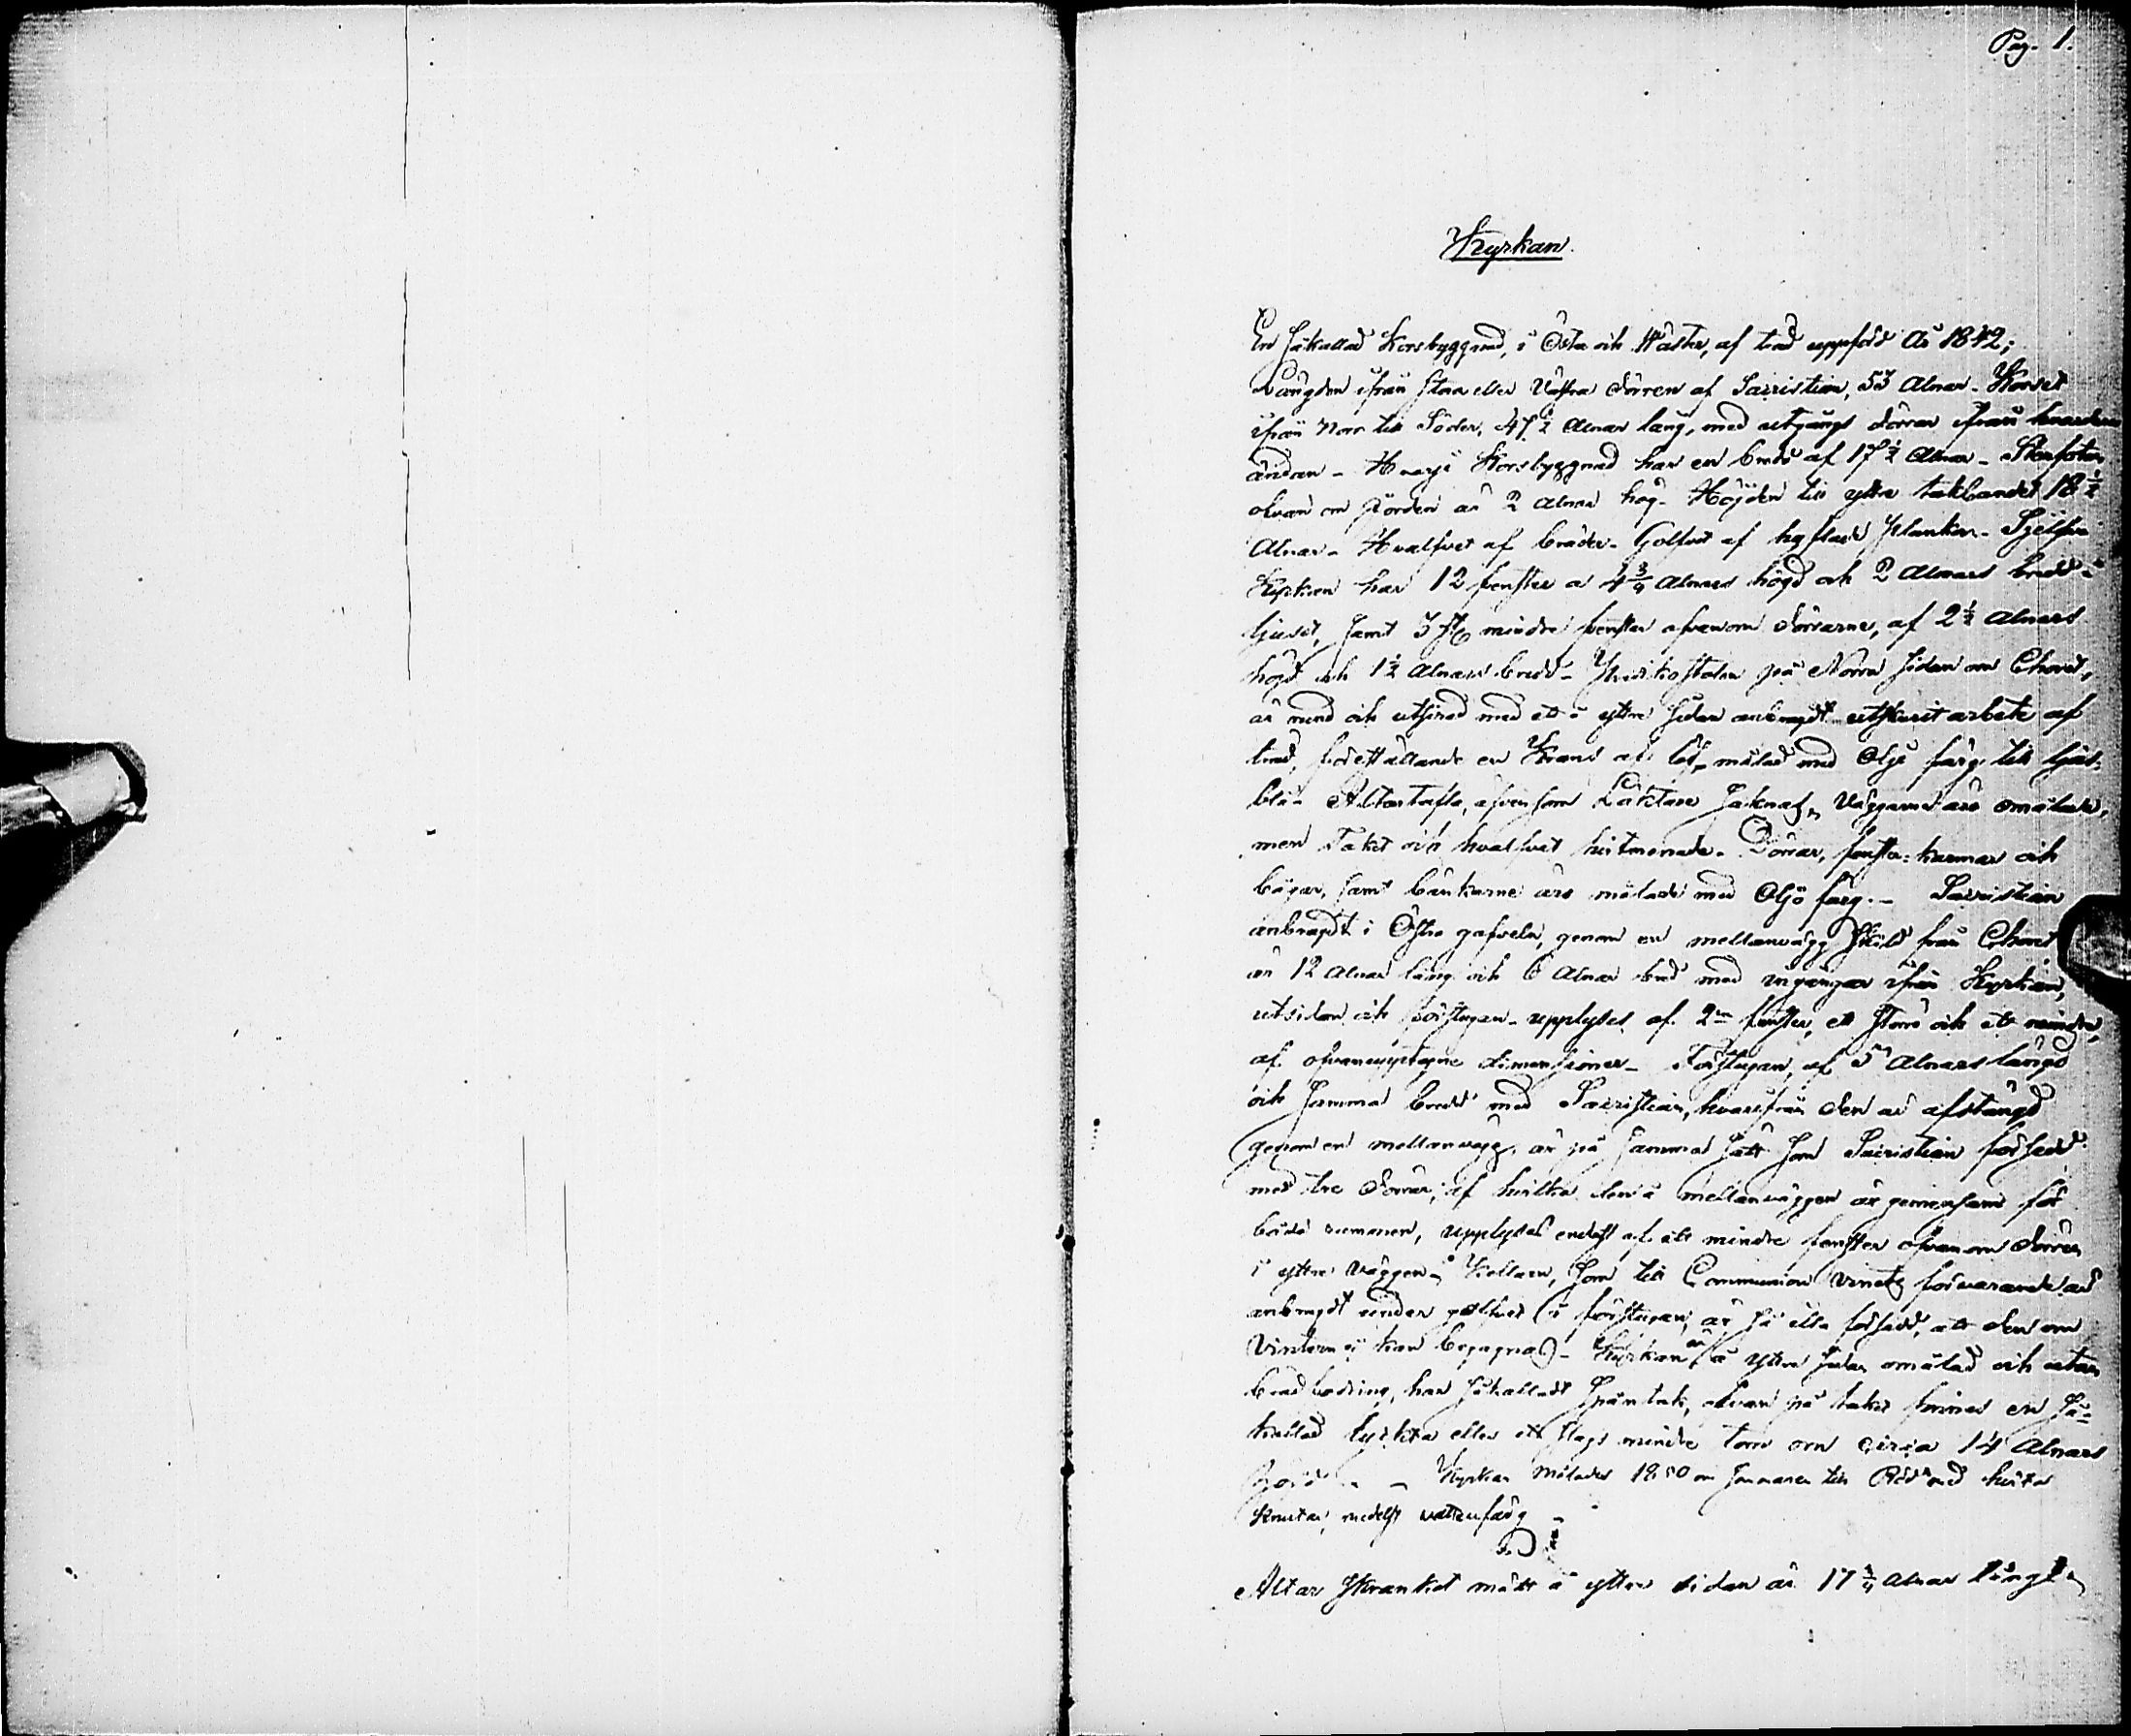 Pag. 1.
Kyrkan.
En såkallad Korsbyggnad, i Öster och Wäster, af träd uppförd År 1842;
Längden ifrån stora eller Västra dörren af Sacristian, 53 Alnar. Korset
ifrån Norr till Söder, 47½ Alnar lång, med utgångs dörrar ifrån hvardera
ändan - Hvarje Korsbyggnad har en bredd af 17½ Alnar - Stenfoten
ofvan om jorden är 2 Alnar hög - Höjden till yttre takbandet 18½
Alnar - Hvalfvet af bräder - Golfvet af hyflade Plankor - Sjelfva
Kyrkan har 12 fenster a 4¾ Alnars högd och 2 Alnars bredd i
ljuset, samt 3 st mindre fenster ofvanom dörrarne, af 2½ Alnars
högd och 1½ Alnars bredd - Predikostolen på Norra sidan om Choret,
är rund och utsirad med ett å yttre sidan anbragdt utskurit arbete af
träd, föreställande en Krans af löf, målad med Olje färg till ljus-
blå - Altartafla, äfvensom Läktare saknas, Väggarne äro omålade,
men Taket och hvalfvet hvitmenade. Dörrar, fenster-karmar och
bågar, samt bänkarne äro målade med Oljo färg. - Sacristian
anbragdt i Östra gafveln, genom en mellanvägg skild från Choret
är 12 Alnar lång och 6 Alnar bred med ingångar ifrån Kyrkan,
utsidan och förstugan - upplyses af 2ne fenster, ett större och ett mindre,
af ofvanupptagne dimensioner - Förstugan, af 5 Alnars längd
och samma bredd med Sacristian, hvarifrån den är afstängd
genom en mellanvägg, är på samma sätt som Sacristian försedd
med tre dörrar, af hvilka den å mellanväggen är gemensam för
båda rummen, upplyses endast af ett mindre fenster ofvanom dörren
i yttre väggen - Källaren, som till Communion vinets förvarande är
anbragdt under golfvet i förstugan, är så illa försedd, att den om
Vintern ej kan begagnas - Kyrkan är å yttre sidan omålad och utan
brädfodring, har såkalladt Spåntak, ofvan på taket finnes en så-
kallad lyckta eller ett slags mindre torn om circa 14 Alnars
höjd. - Kyrkan målades 1850 om sommaren till Röd med hvita
knutar, medelst vattenfärg -
Altar skranket mätt å yttre sidan är 17¾ Alnar långt